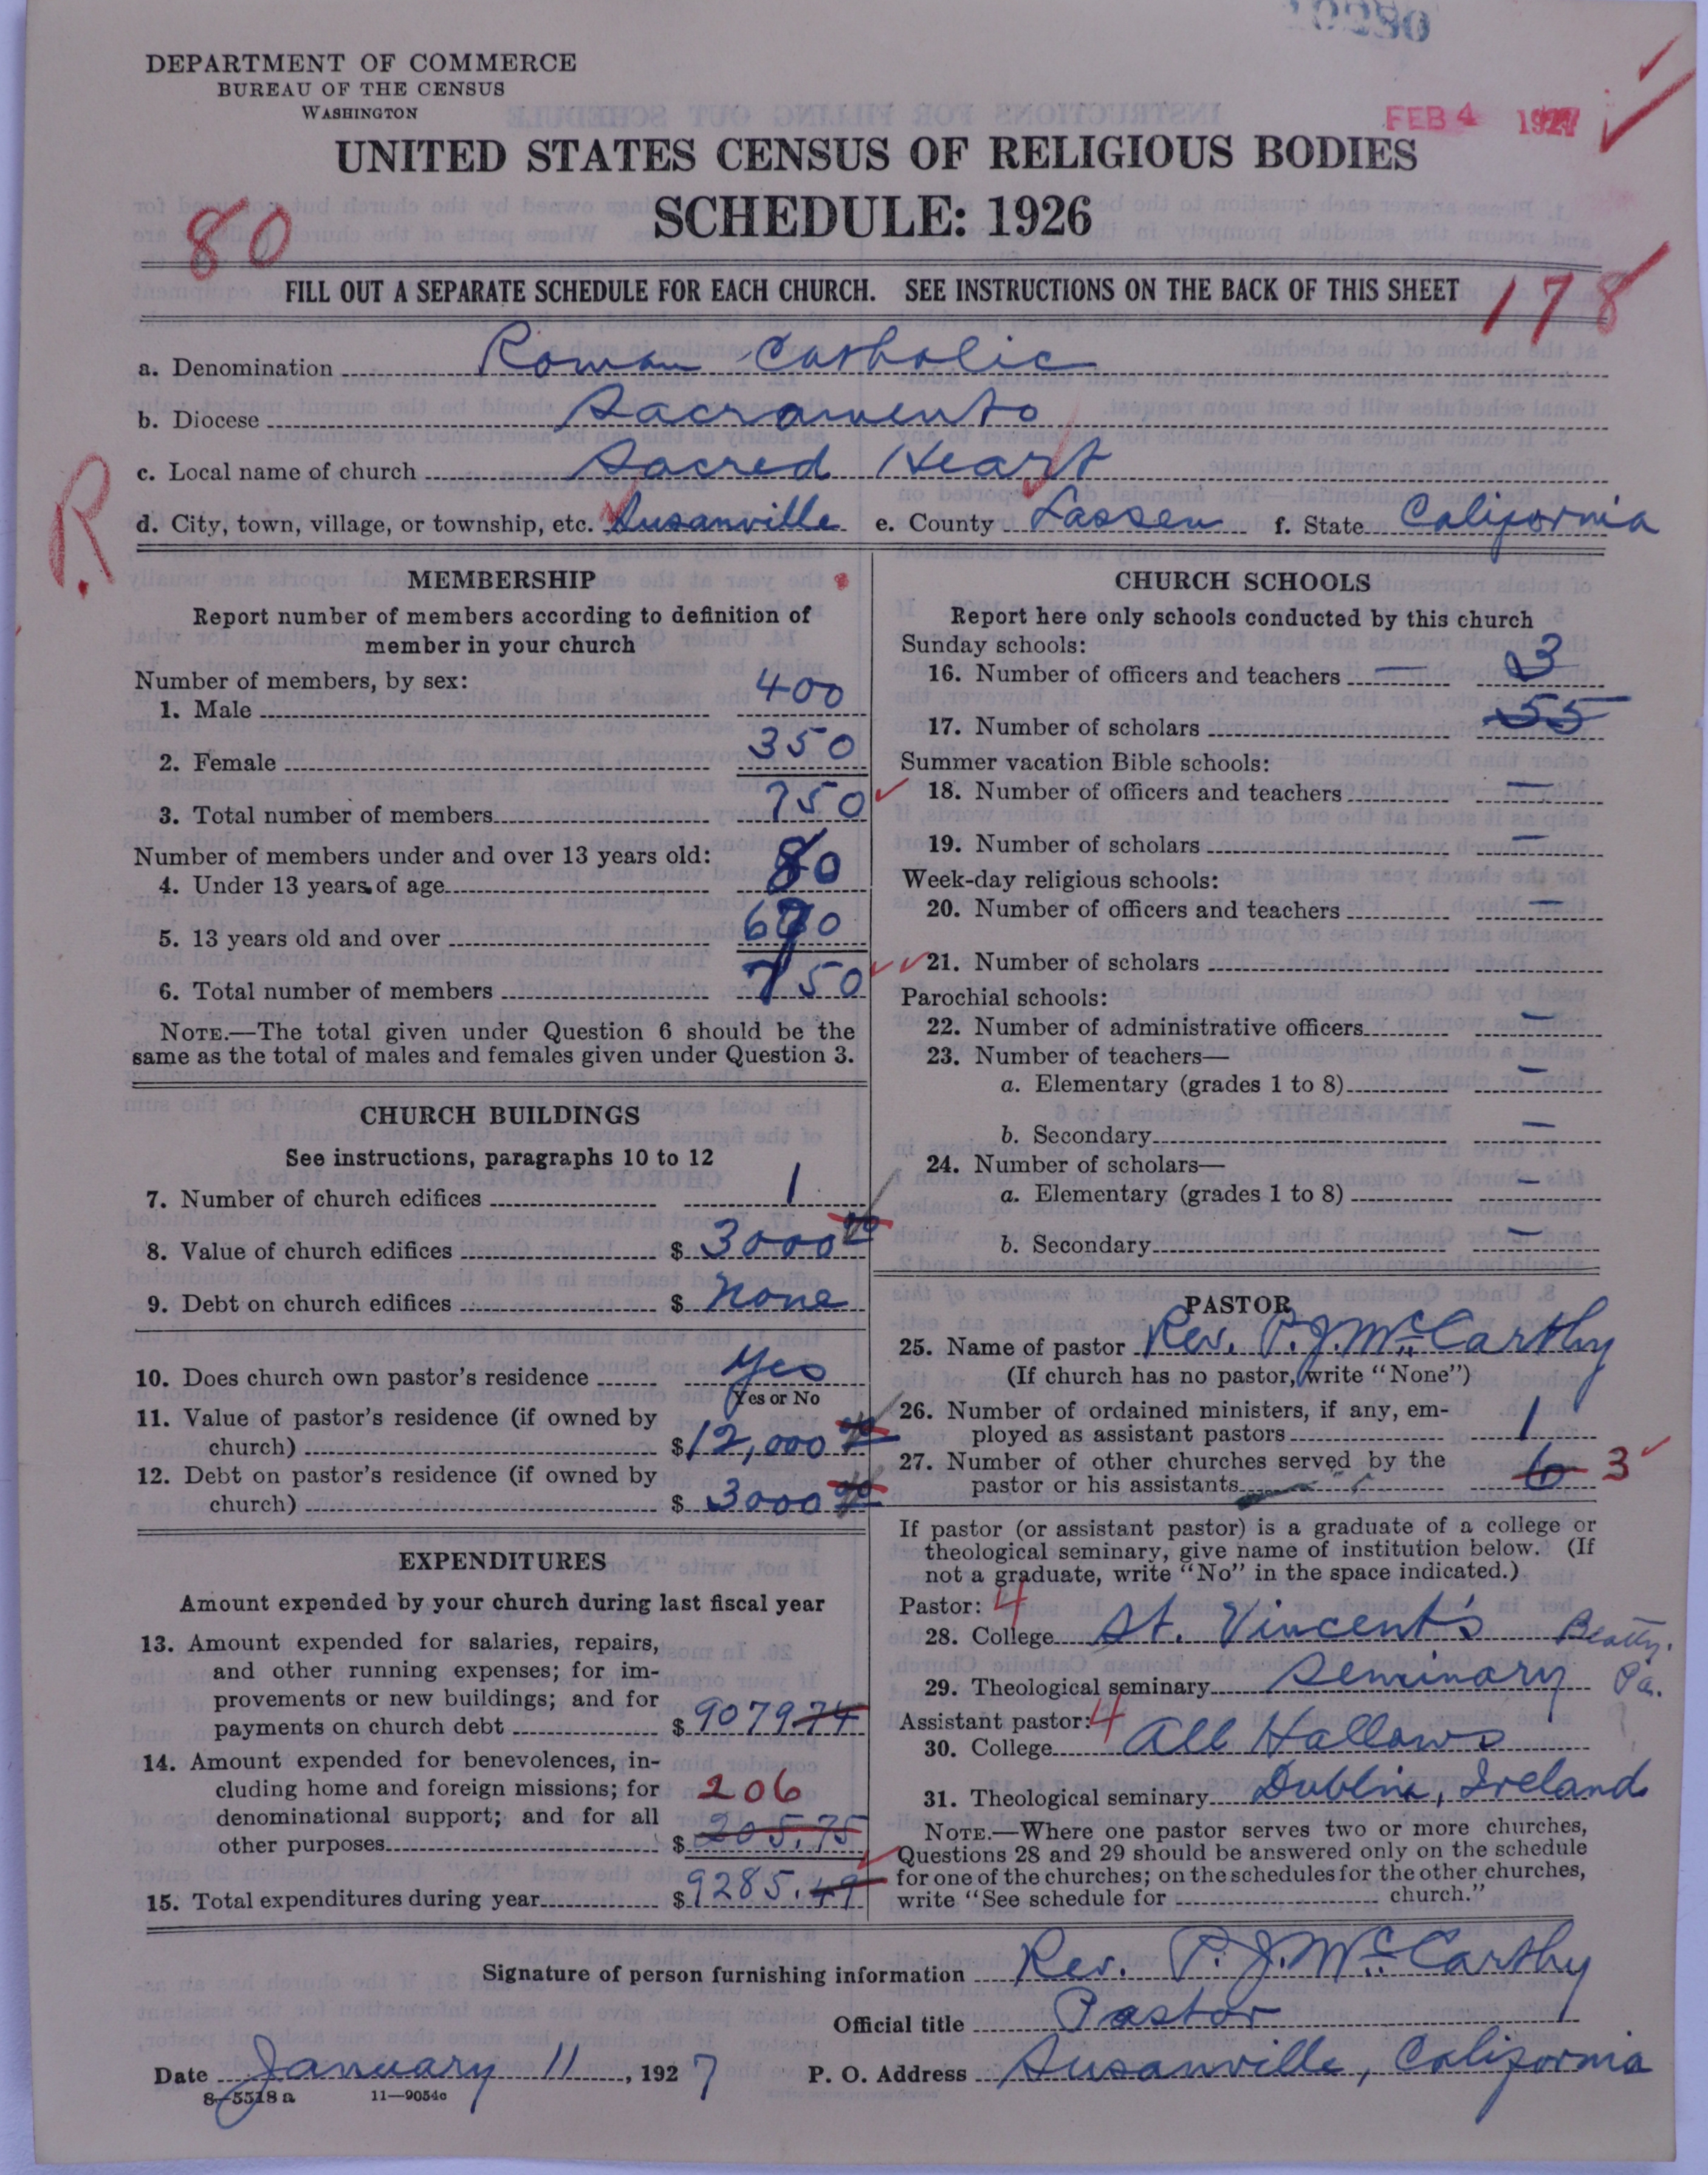 DEPARTMENT OF COMMERCE
BUREAU OF THE CENSUS
WASHINGTON
FEB 4 1927
UNITED STATES CENSUS OF RELIGIOUS BODIES
SCHEDULE: 1926
80
FILL OUT A SEPARATE SCHEDULE FOR EACH CHURCH. SEE INSTRUCTIONS ON THE BACK OF THIS SHEET
178
a. Denomination Roman Catholic
b. Diocese Sacramento
c. Local name of church Sacred Heart
R
d. City, town, village, or township, etc. Susanville e. County Lassen f. State California
MEMBERSHIP
Report number of members according to definition of
member in your church
Number of members, by sex:
1. Male 400
2. Female 350
3. Total number of members 750
Number of members under and over 13 years old:
4. Under 13 years of age 80
5. 13 years old and over 670
6. Total number of members 750
NOTE.—The total given under Question 6 should be the
same as the total of males and females given under Question 3.
CHURCH BUILDINGS
See instructions, paragraphs 10 to 12
7. Number of church edifices 1
8. Value of church edifices $ 3000
9. Debt on church edifices $ None
10. Does church own pastor's residence Yes
Yes or No
11. Value of pastor's residence (if owned by
church) $ 12,000
12. Debt on pastor's residence (if owned by
church) $ 3000
EXPENDITURES
Amount expended by your church during last fiscal year
13. Amount expended for salaries, repairs,
and other running expenses; for im-
provements or new buildings; and for
payments on church debt $ 9079 74
14. Amount expended for benevolences, in-
cluding home and foreign missions; for
206
denominational support; and for all
other purposes $ 205.75
15. Total expenditures during year $ 9285.49
CHURCH SCHOOLS
Report here only schools conducted by this church
Sunday schools:
16. Number of officers and teachers — 3
17. Number of scholars 55
Summer vacation Bible schools:
18. Number of officers and teachers —
19. Number of scholars —
Week-day religious schools:
20. Number of officers and teachers —
21. Number of scholars
Parochial schools:
22. Number of administrative officers —
23. Number of teachers—
a. Elementary (grades 1 to 8) —
b. Secondary —
24. Number of scholars—
a. Elementary (grades 1 to 8) —
b. Secondary —
PASTOR
25. Name of pastor Rev. P. J. McCarthy
(If church has no pastor, write "None")
26. Number of ordained ministers, if any, em-
ployed as assistant pastors 1
27. Number of other churches served by the
pastor or his assistants 6 3
If pastor (or assistant pastor) is a graduate of a college or
theological seminary, give name of institution below. (If
not a graduate, write "No" in the space indicated.)
Pastor: 4
28. College St. Vincent's Beatty.
29. Theological seminary Seminary Pa.
Assistant pastor: 4
30. College All Hallows
31. Theological seminary Dublin, Ireland
NOTE.—Where one pastor serves two or more churches,
Questions 28 and 29 should be answered only on the schedule
for one of the churches; on the schedules for the other churches,
write "See schedule for church."
Signature of person furnishing information Rev. P. J. McCarthy
Official title Pastor
Date January 11, 1927 P. O. Address Susanville, California
8-5518 a 11—9054c